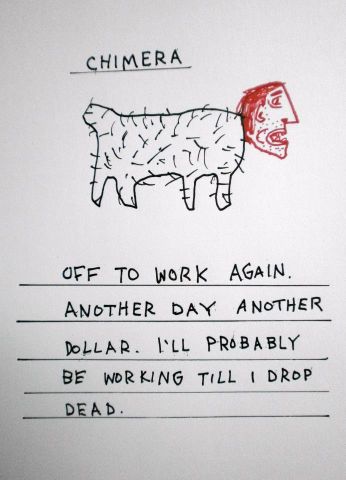 CHIMERA
OFF TO WORK AGAIN.
ANOTHER DAY ANOTHER
DOLLAR. I'LL PROBABLY
BE WORKING TILL I DROP
DEAD.